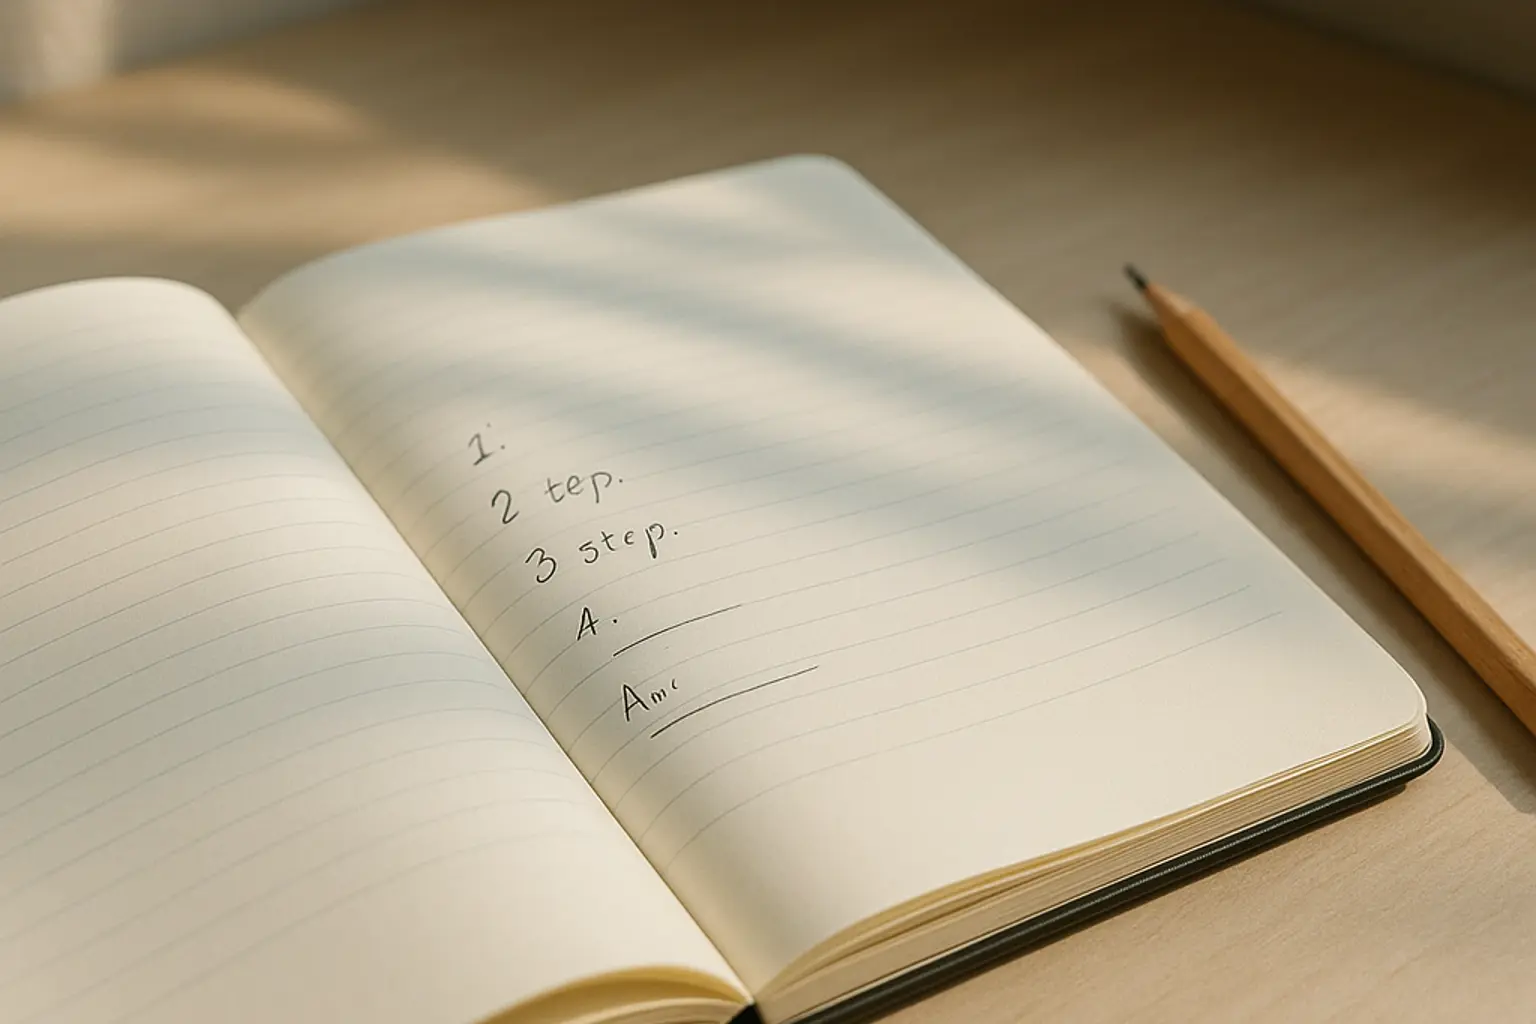 1.
2 tep.
3 step.
A.
Am